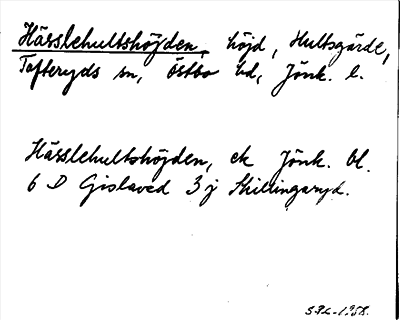 Hässlehultshöjden, höjd, Hultsgärde,
Tofteryds sn, Östbo hd, Jönk. l.
Hässlehultshöjden, ek Jönk. bl.
6 D Gislaved 3 j Skillingaryd.
1958.